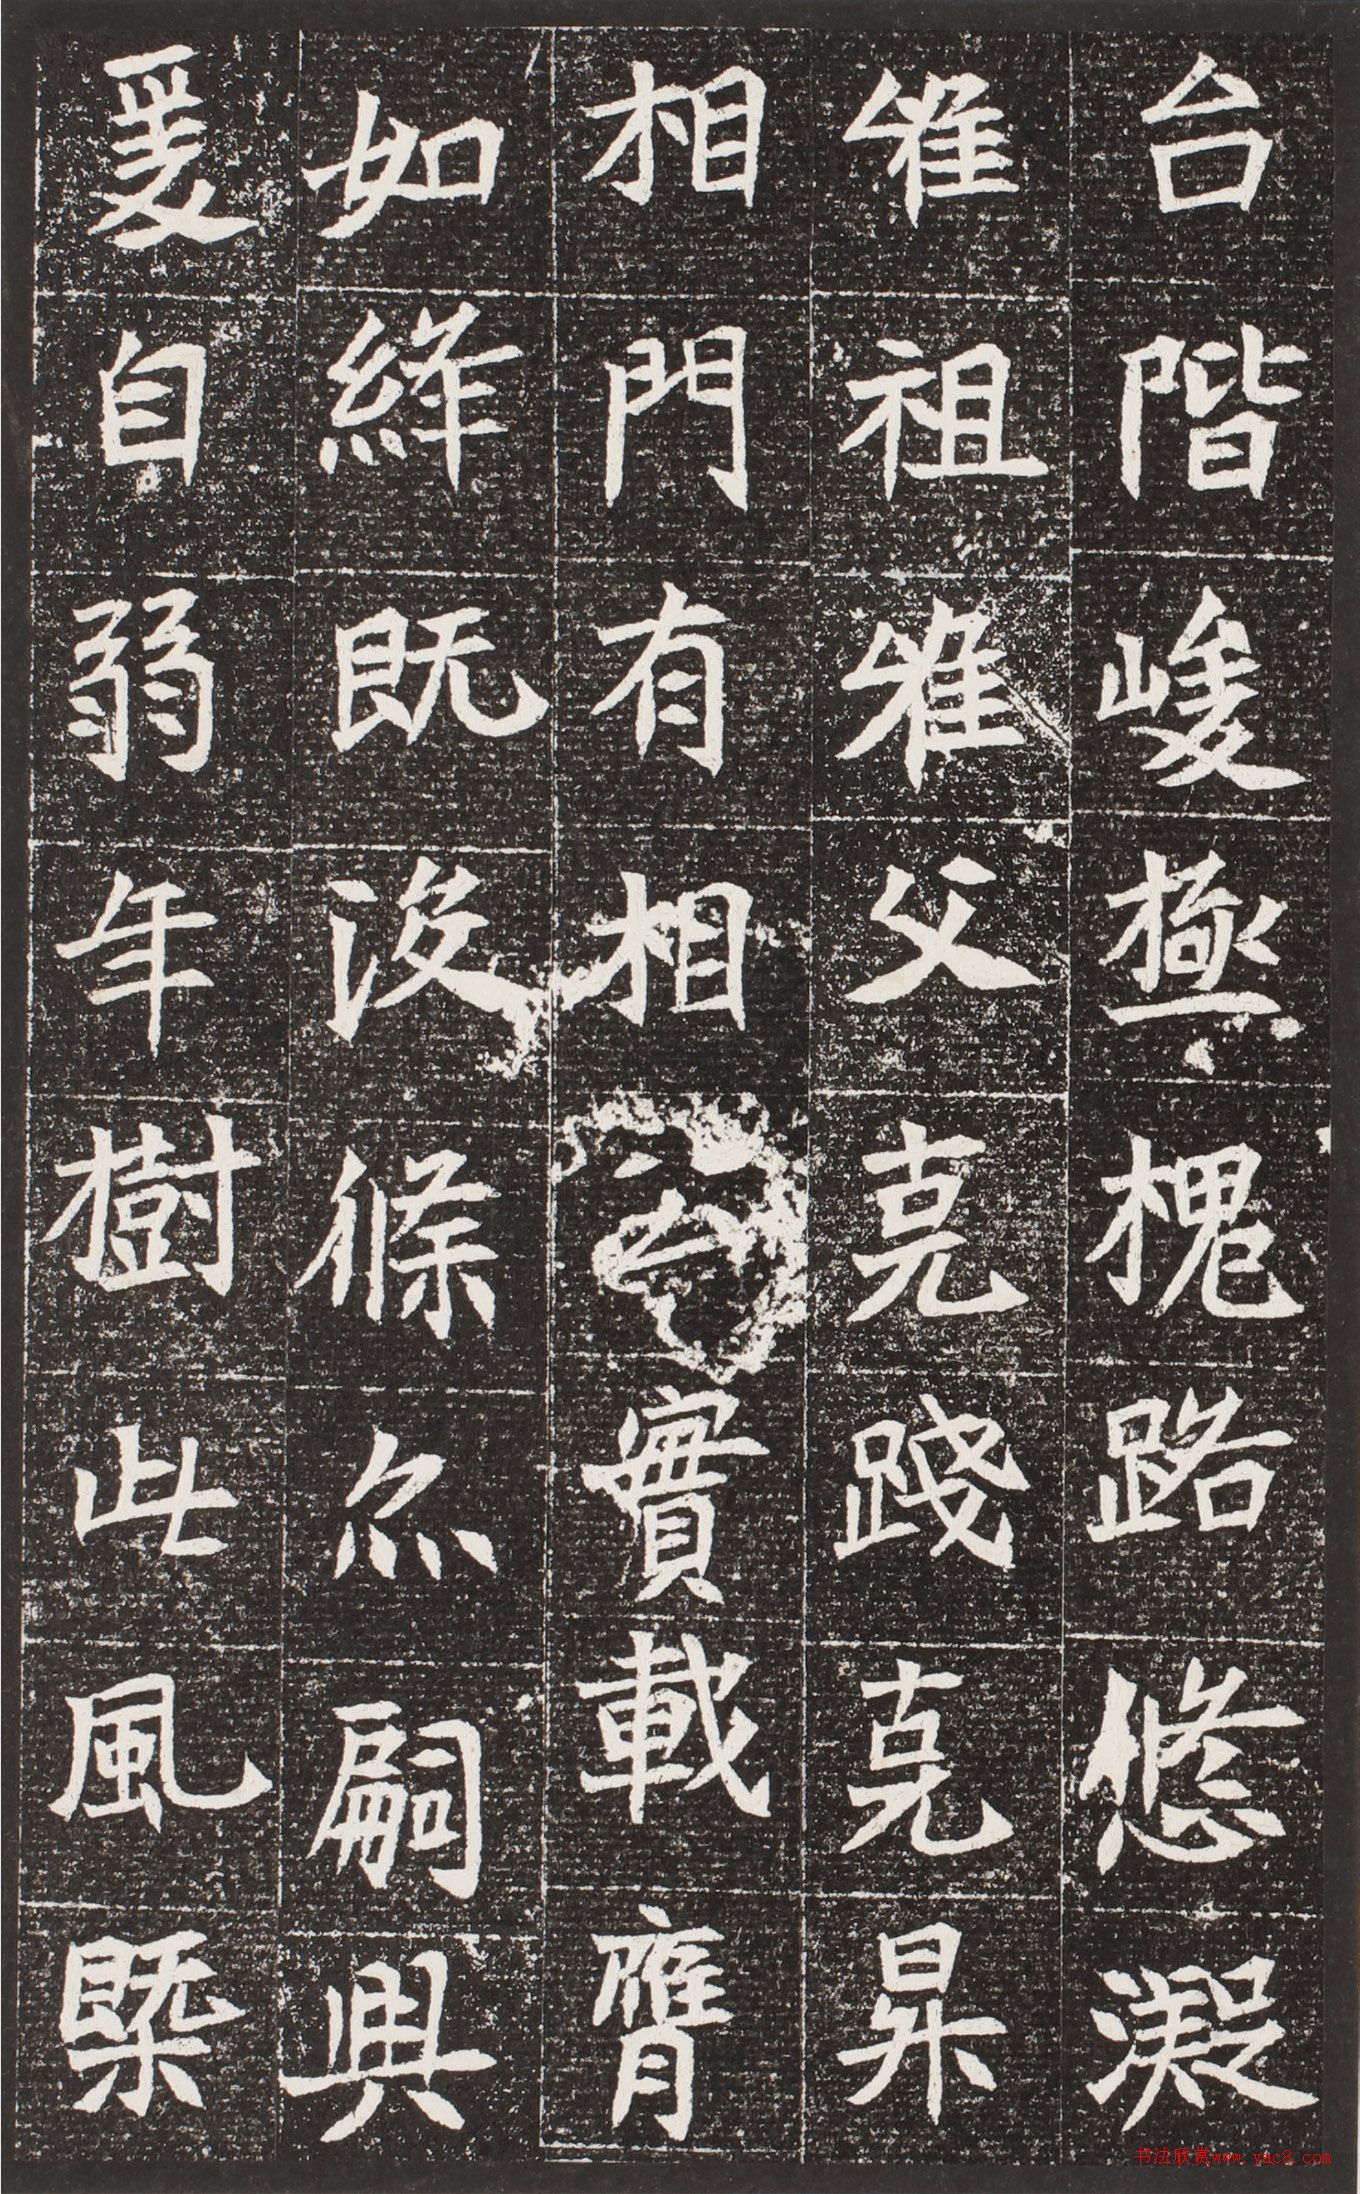 台階峻極槐路悠凝
唯祖唯父克踐克昇
相門有相實載膺
如絳既没絛亦嗣興
爰自弱年樹此風槩
书法欣赏www.yac8.com